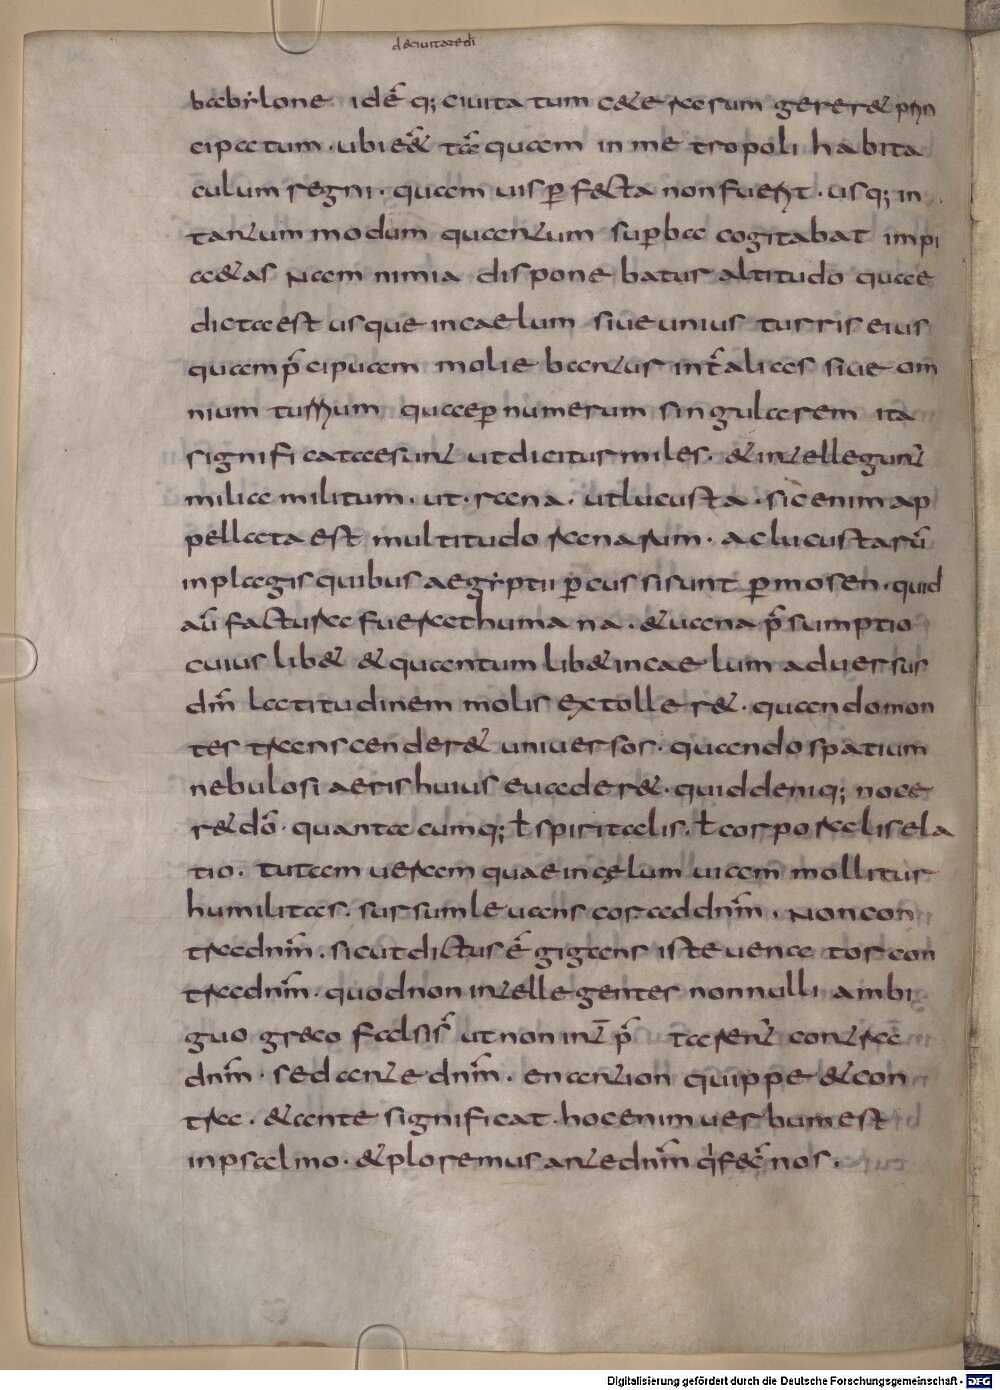 deciuitatedi
babylone idē q; ciuitatum cae&erarum gerer& prin
cipatum · ubi e&̄ tāquam in metropoli habita
culum regni · quam uis p̱fecta non fuerit · usq; in
tantum modum quantum sup̱ba cogitabat impi
a&as Nam nimia disponebatur altitudo quae
dicta est usque in caelum siue unius turris eius
quam p̄cipuam moliebantur int̄ alias siue om
nium turrium quae p̱ numerum singularem ita
significatae sunt ut dicitur miles · & intelleguntur
milia militum · ut · rana · ut lucusta · sic enim ap
pellata est multitudo ranarum · ac lucustarū
in plagis quibus aegyptii p̱cussi sunt p̱ mosen · quid
aū factura fuerat humana · & uana p̄sumptio
cuius lib& & quantum lib& in caelum aduersus
dm̄ latitudinem molis extoller& · quando mon
tes transcender& universos · quando spatium
nebulosi aeris huius euader& · quid deniq; noce
r& dō · quantacumq; ł spiritalis · ł corporalis ela
tio · tutam ueram quae in cęlum uiam mollitur
humilitas · sursum leuans cor ad dnm̄ · Non con
tra dnm̄ · sicut dictus ē gigans iste uenator con
tra dnm̄ · quod non intellegentes nonnulli ambi
guo greco falsi s̄ ut non int̄p̄ tarent̄ contra
dnm̄ · sed ante dnm̄ · enantion quippe & con
tra · & ante significat · hoc enim uerbum est
in psalmo · & ploremus ante dnm̄ q̇ fec̄ nos ·
Digitalisierung gefördert durch die Deutsche Forschungsgemeinschaft - DFG